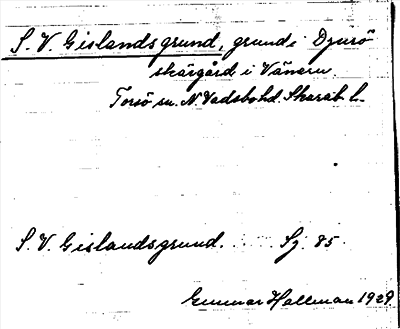 S. V. Gislandsgrund, grund i Djurö
skärgård i Vänern.
Torsö sn. N. Vadsbohd. Skarab. l.
S. V. Gislandsgrund. Sj. 85.
Gunnar Hallman 1929.